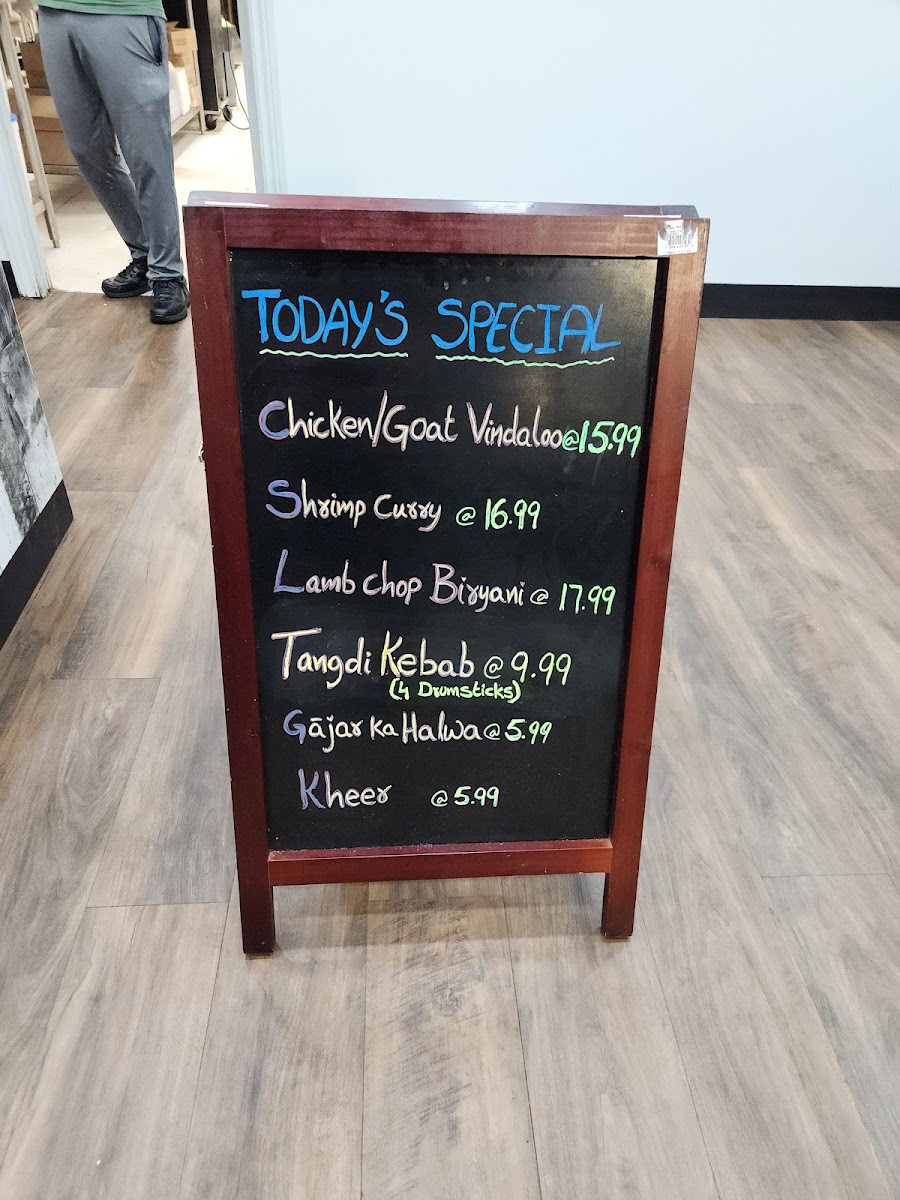 TODAY'S SPECIAL
Chicken/Goat Vindaloo@15.99
Shrimp Curry @ 16.99
Lamb chop Biryani @ 17.99
Tangdi Kebab @ 9.99
(4 Drumsticks)
Gājar ka Halwa @ 5.99
Kheer @ 5.99